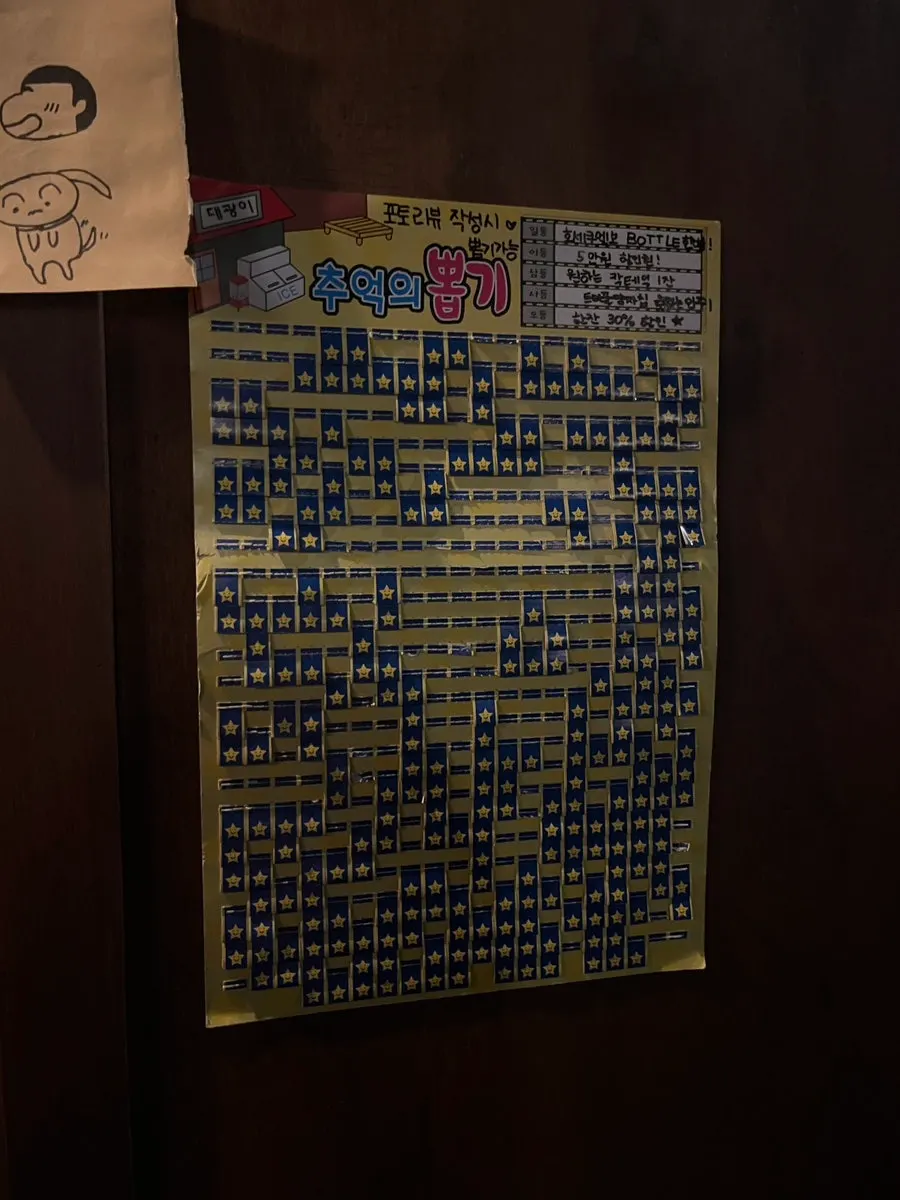 대광이
포토리뷰 작성시
뽑기가능
추억의 뽑기
ICE
일등
BOTTLE
이등 5만원 할인권!
삼등 원하는 칵테일 1잔
사등
오등 한잔 30% 할인